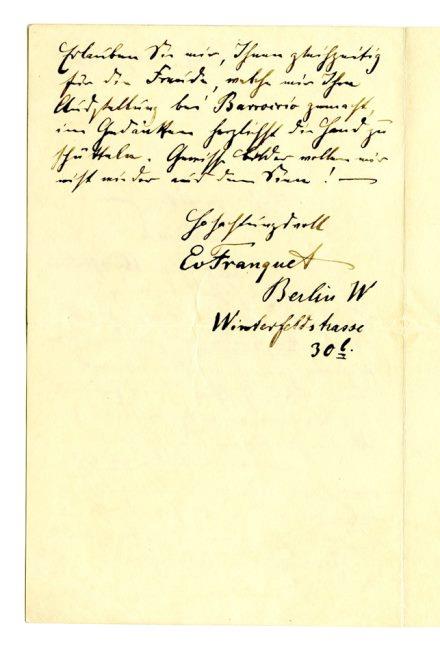 Erlauben Sie mir, Ihnen gleichzeitig
für die Freude, welche mir Ihre
Ausstellung bei Barroccio gemacht,
im Gedanken herzlichst die Hand zu
schütteln. Gewisse Bilder wollen mir
nicht wieder aus dem Sinn! —
Hochachtungsvoll
Ev Franquet
Berlin W
Winterfeldstrasse
30